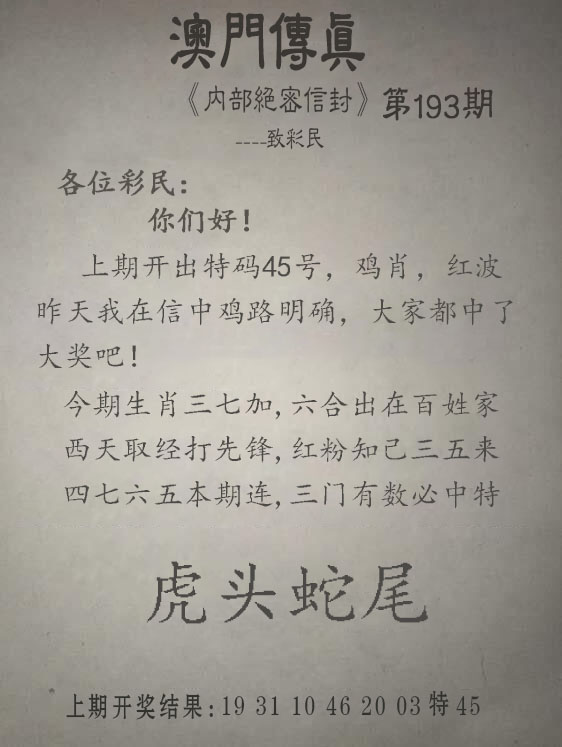 澳門傳真
《内部絕密信封》第193期
----致彩民
各位彩民：
你们好！
上期开出特码45号，鸡肖，红波
昨天我在信中鸡路明确，大家都中了
大奖吧！
今期生肖三七加,六合出在百姓家
西天取经打先锋,红粉知己三五来
四七六五本期连,三门有数必中特
虎头蛇尾
上期开奖结果:19 31 10 46 20 03特45